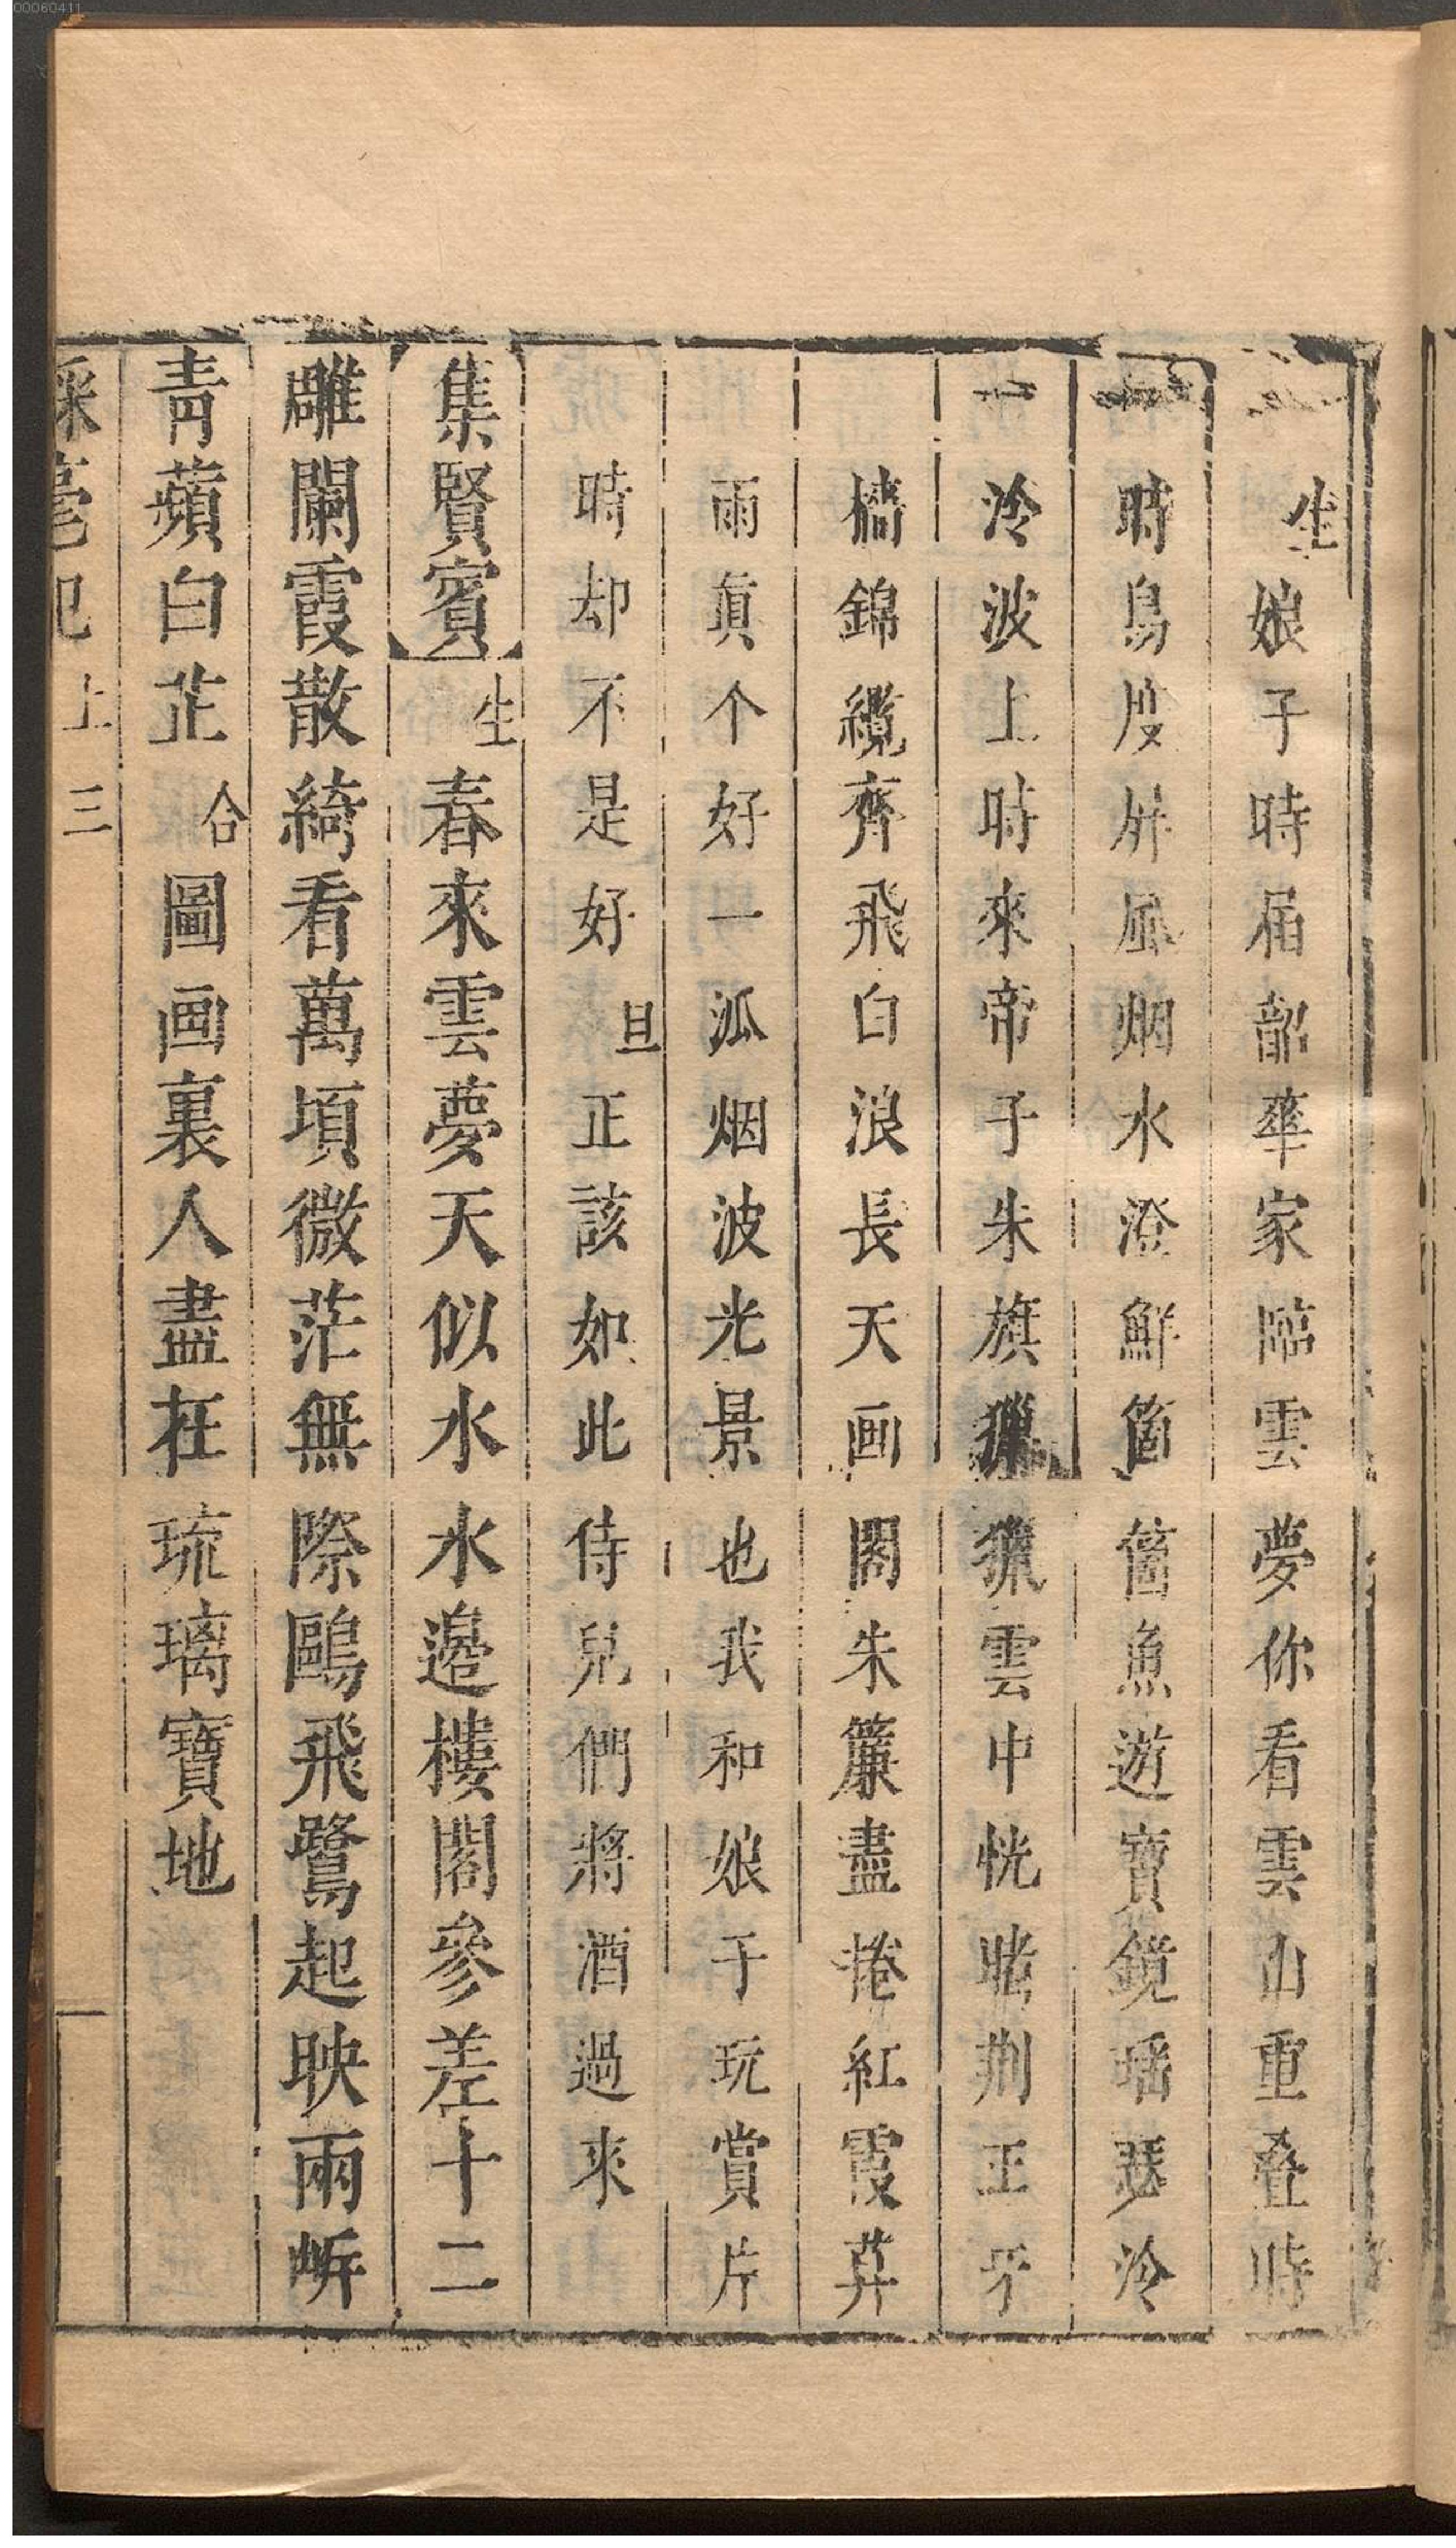 00060411
生 娘子時届韶華家臨雲夢你看雲山重叠時
時鳥度屏風烟水澄鮮箇箇魚遊寶鏡瑶瑟泠
泠波上時來帝子朱旗獵獵雲中恍睹荆王牙
檣錦纜齊飛白浪長天画閣朱簾盡捲紅霞莫
雨眞个好一派烟波光景也我和娘子玩賞片
時却不是好 旦 正該如此侍兒們將酒過來
集賢賓 生 春來雲夢天似水水邉樓閣參差十二
雕闌霞散綺看萬頃微茫無際鷗飛鷺起映兩岍
青蘋白芷 合 圖画裏人盡在琉璃寶地
綵毫記 上 三